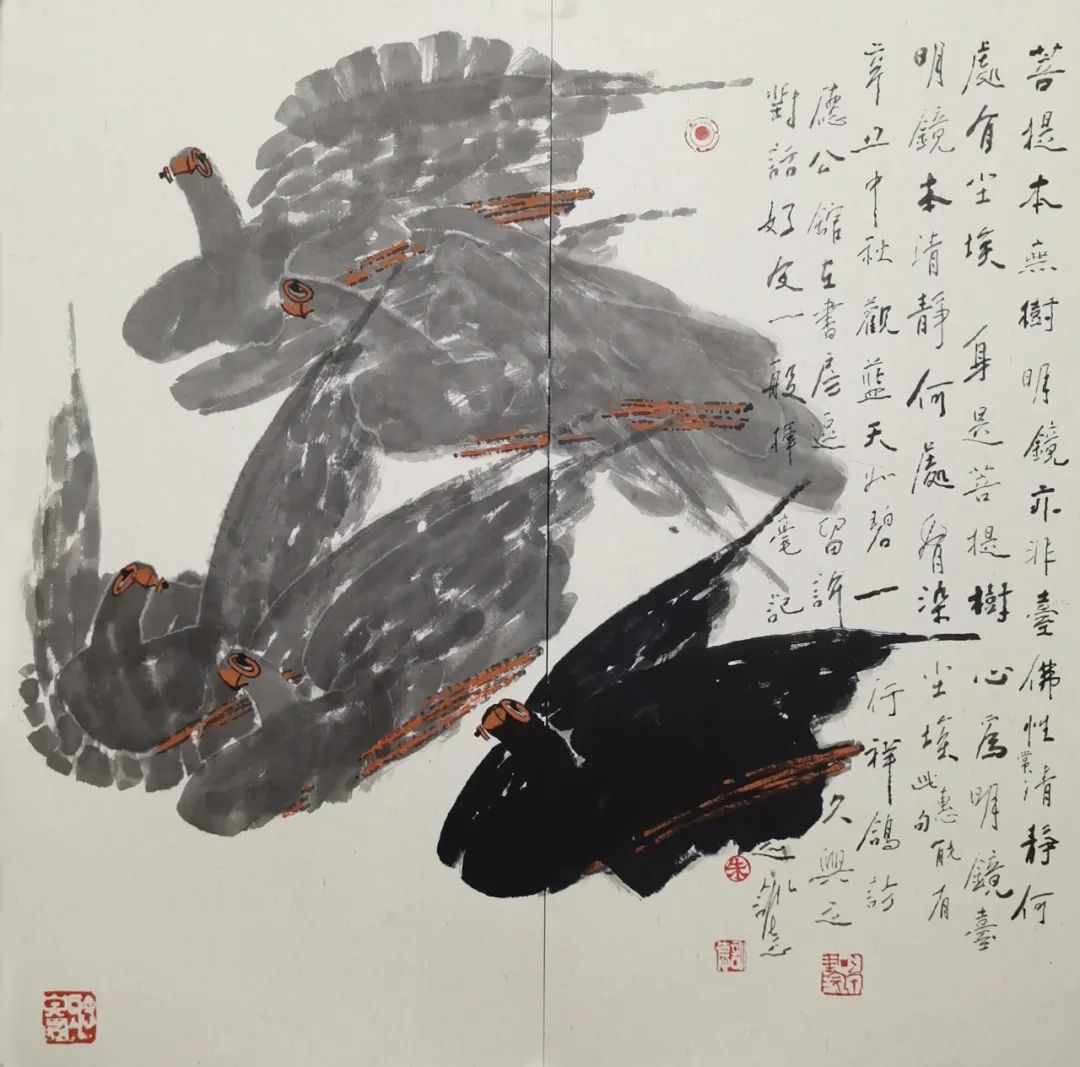 菩提本無樹明鏡亦非臺佛性常清靜何
處有尘埃身是菩提樹心為明鏡臺
明鏡本清靜何處有染尘埃此句惠能有
辛丑中秋觀藍天如碧一行祥鴿訪
德公館在書房逗留許久興之
對話好友一般揮毫記之
朱